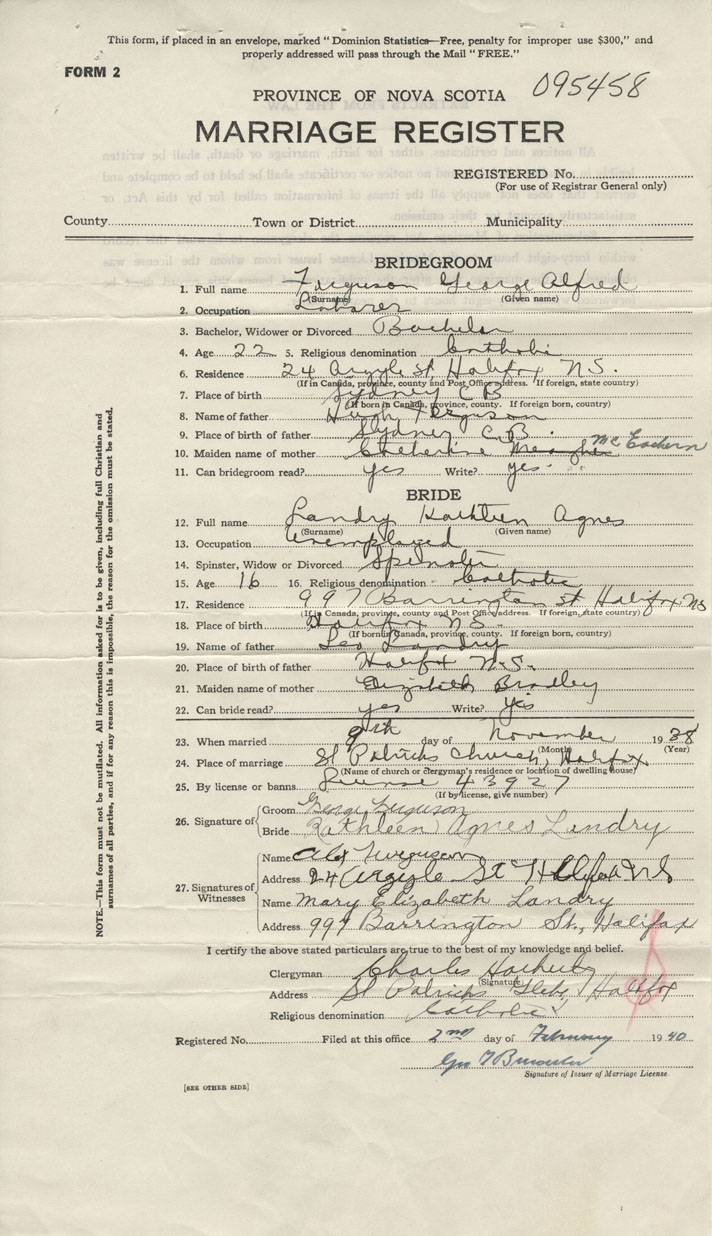 This form, if placed in an envelope, marked "Dominion Statistics—Free, penalty for improper use $300," and
properly addressed will pass through the Mail "FREE."
FORM 2
095458
PROVINCE OF NOVA SCOTIA
MARRIAGE REGISTER
REGISTERED No.
(For use of Registrar General only)
County Town or District Municipality
BRIDEGROOM
1. Full name Ferguson George Alfred
(Surname) (Given name)
2. Occupation Laborer
3. Bachelor, Widower or Divorced Bachelor
4. Age 22 5. Religious denomination Catholic
6. Residence 24 Argyle St Halifax N.S.
(If in Canada, province, county and Post Office address. If foreign, state country)
7. Place of birth Sydney C B
(If born in Canada, province, county. If foreign born, country)
8. Name of father Hugh Ferguson
9. Place of birth of father Sydney C.B.
10. Maiden name of mother Catherine Meagher McEachern
11. Can bridegroom read? yes Write? yes
BRIDE
12. Full name Landry Kathleen Agnes
(Surname) (Given name)
13. Occupation Unemployed
14. Spinster, Widow or Divorced Spinster
15. Age 16 16. Religious denomination Catholic
17. Residence 997 Barrington St Halifax NS
(If in Canada, province, county and Post Office address. If foreign, state country)
18. Place of birth Halifax N.S.
(If born in Canada, province, county. If foreign born, country)
19. Name of father Leo Landry
20. Place of birth of father Halifax N.S.
21. Maiden name of mother Elizabeth Bradley
22. Can bride read? yes Write? yes
23. When married 9th day of November 1938
(Month) (Year)
24. Place of marriage St Patricks Church, Halifax
(Name of church or clergyman's residence or location of dwelling house)
25. By license or banns License 43927
(If by license, give number)
26. Signature of Groom George Ferguson
Bride Kathleen Agnes Landry
27. Signatures of Witnesses
Name Alex Ferguson
Address 24 Argyle St Halifax NS
Name Mary Elizabeth Landry
Address 997 Barrington St., Halifax
I certify the above stated particulars are true to the best of my knowledge and belief.
Clergyman Charles
(Signature)
Address St Patricks Glebe, Halifax
Religious denomination Catholic
Registered No. Filed at this office 2nd day of February 1940
Signature of Issuer of Marriage License.
[SEE OTHER SIDE]
NOTE.—This form must not be mutilated. All information asked for is to be given, including full Christian and
surnames of all parties, and if for any reason this is impossible, the reason for the omission must be stated.